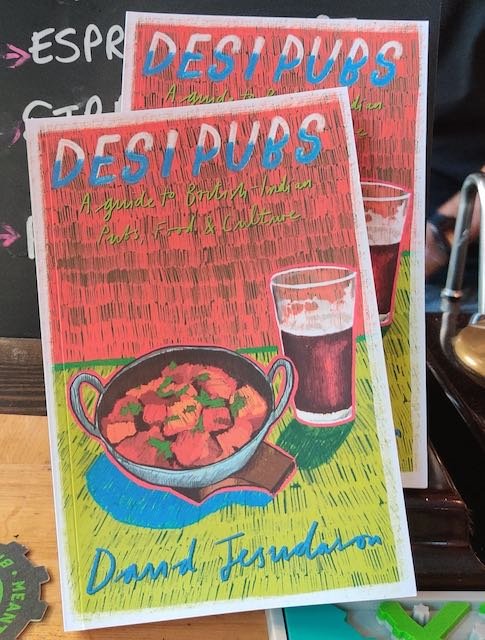 ESPR
DESI PUBS
DESI PUBS
A guide to British-Indian
Pubs, Food & Culture
David Jesudason
MEANT